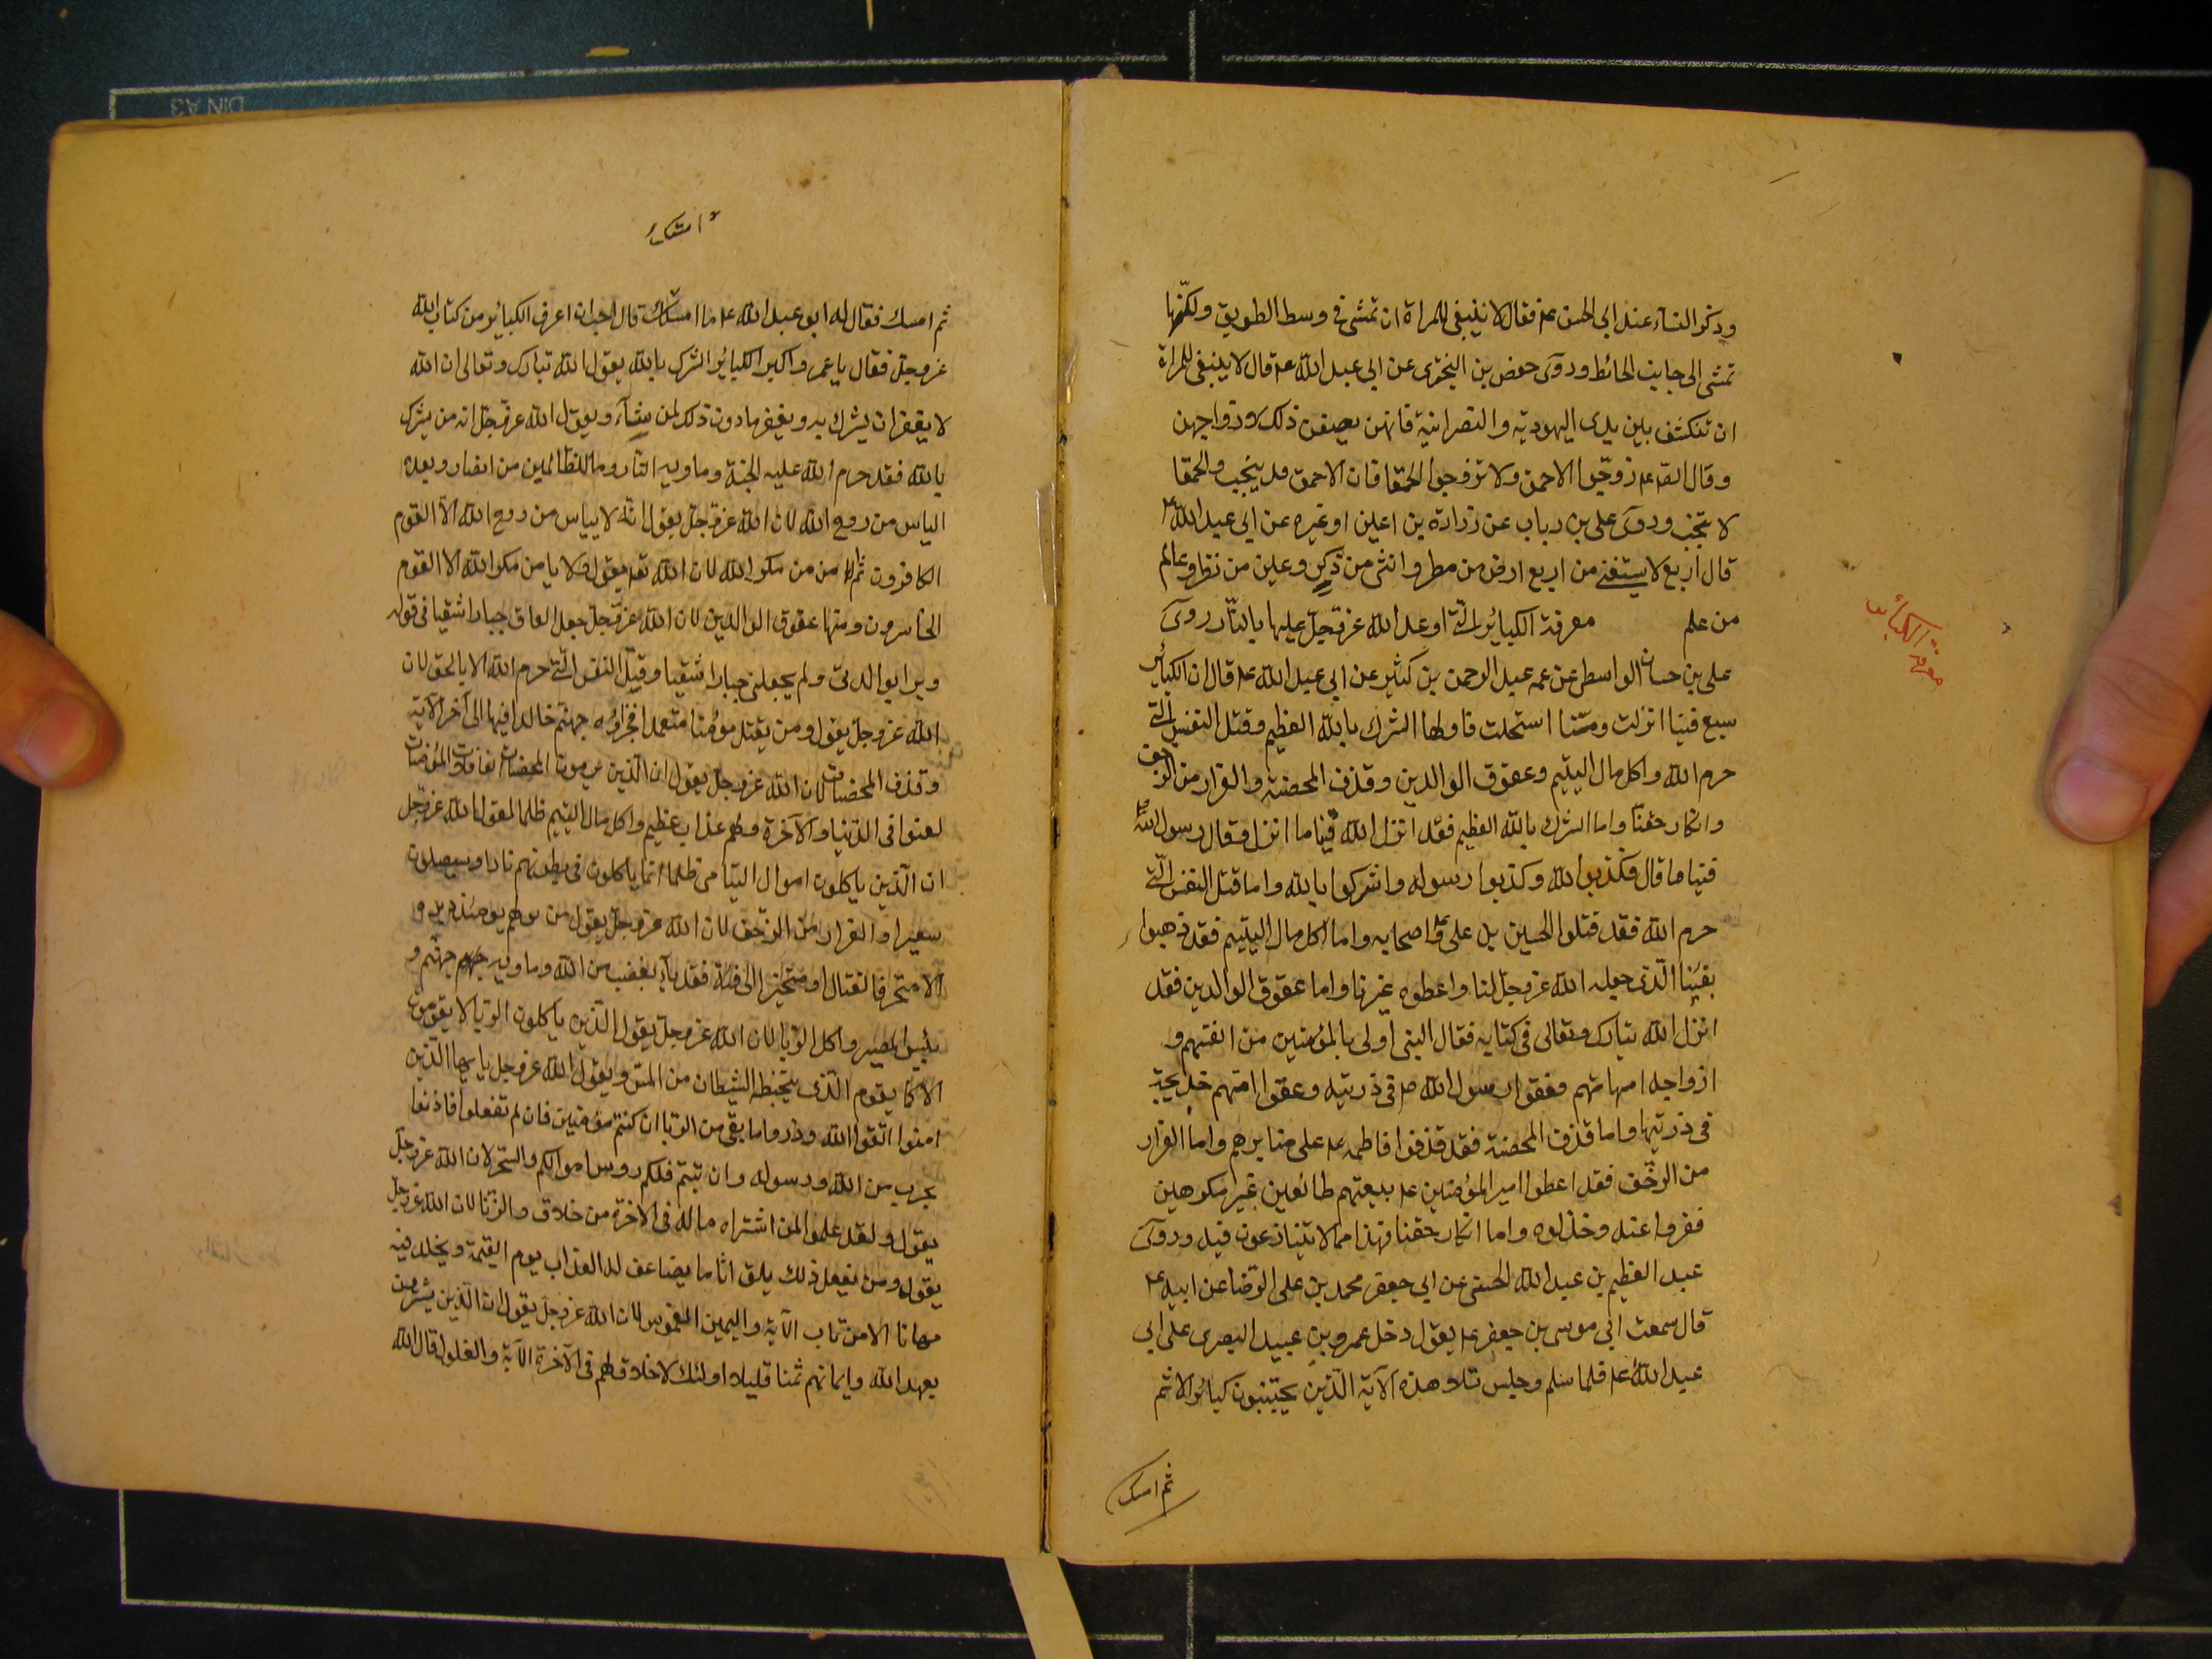 وذكر النسآء عند ابي الحسن عم فقال لا ينبغي للمراة ان تمشى في وسط الطريق ولكنّها
تمشى الى جانب الحائط وروى حفص بن البختري عن ابي عبد الله عم قال لا ينبغي للمراة
ان تنكشف بين يدى اليهودية والنصرانية فانهن يصفن ذلك لازواجهن
وقال الصم عم زوّجوا الاحمق ولا تزوجوا الحمقا فان الاحمق قد ينجب والحمقا
لا تنجب وروى على بن رباب عن زرارة بن اعين او غيره عن ابي عبد الله عم
قال اربع لا يستغنى من اربع ارض من مطر وانثى من ذكر وعين من نظر وعالم
من علم معرفة الكبائر التى اوعد الله عز وجل عليها بالنّار روى
على بن حسان الواسطى عن عمه عبد الرحمن بن كثير عن ابي عبد الله عم قال ان الكبائر
سبع فينا انزلت ومنّا استحلت فاولها الشرك بالله العظيم وقتل النفس التى
حرم الله واكل مال اليتيم وعقوق الوالدين وقذف المحصنة والفرار من الزحف
وانكار حقنّا واما الشرك بالله العظيم فقد انزل الله فينا ما انزل وقال رسول الله ص
فينا ما قال فكذبوا الله وكذبوا رسوله واشركوا بالله واما قتل النفس التى
حرم الله فقد قتلوا الحسين بن على ع واصحابه واما اكل مال اليتيم فقد ذهبوا
بفيئنا الّذى جعله الله عز وجل لنا واعطوه غيرنا واما عقوق الوالدين فقد
انزل الله تبارك وتعالى فى كتابه فقال النبى اولى بالمؤمنين من انفسهم و
ازواجه امهاتهم فعقوا رسول الله ص فى ذريته وعقوا امّهم خديجة
فى ذريتها واما قذف المحصنة فقد قذفوا فاطمه عم على منابرهم واما الفرار
من الزحف فقد اعطوا امير المؤمنين عم بيعتهم طائعين غير مكرهين
ففروا عنه وخذلوه واما انكار حقنا فهذا مما لا يتنازعون فيه وروى
عبد العظيم بن عبد الله الحسنى عن ابي جعفر محمد بن على الرضا عن ابيه عم
قال سمعت ابي موسى بن جعفر عم يقول دخل عمرو بن عبيد البصرى على ابي
عبد الله عم فلما سلم وجلس تلا هذه الآية الّذين يجتنبون كبائر الاثم
ثم امسك
معرفة الكبائر
ثم امسك فقال له ابو عبد الله عم ما امسكك قال احب ان اعرف الكبائر من كتاب الله
عز وجل فقال يا عمرو اكبر الكبائر الشرك بالله يقول الله تبارك وتعالى ان الله
لا يغفر ان يشرك به ويغفر ما دون ذلك لمن يشآء ويقول الله عز وجل انه من يشرك
بالله فقد حرم الله عليه الجنة وماويه النّار وما للظالمين من انصار وبعده
الياس من روح الله لان الله عز وجل يقول انّه لا يياس من روح الله الا القوم
الكافرون ثم الامن من مكر الله لان الله تعم يقول ولا يامن مكر الله الا القوم
الخاسرون ومنها عقوق الوالدين لان الله عز وجل جعل العاق جبارا شقيا فى قوله
وبرا بوالدتى ولم يجعلنى جبارا شقيا وقتل النفس التى حرم الله الا بالحق لان
الله عز وجل يقول ومن يقتل مؤمنا متعمدا فجزاؤه جهنّم خالدا فيها الى آخر الآية
وقذف المحصنات لان الله عز وجل يقول ان الّذين يرمون المحصنات الغافلات المؤمنات
لعنوا فى الدّنيا والآخرة ولهم عذاب عظيم واكل مال اليتيم ظلما لقول الله عز وجل
ان الّذين ياكلون اموال اليتامى ظلما انما ياكلون فى بطونهم نارا وسيصلون
سعيرا والفرار من الزحف لان الله عز وجل يقول من يولهم يومئذ دبره
الا متحرفا لقتال او متحيزا الى فئة فقد بآء بغضب من الله وماويه جهنّم و
بئس المصير واكل الربا لان الله عز وجل يقول الّذين ياكلون الربا لا يقومون
الا كما يقوم الّذى يتخبطه الشيطان من المسّ ويقول الله عز وجل يا ايها الّذين
امنوا اتّقوا الله وذروا ما بقى من الربا ان كنتم مؤمنين فان لم تفعلوا فاذنوا
بحرب من الله ورسوله وان تبتم فلكم روس اموالكم والسّحر لان الله عز وجل
يقول ولقد علموا لمن اشتراه ماله فى الاخرة من خلاق والزنا لان الله عز وجل
يقول ومن يفعل ذلك يلق اثاما يضاعف له العذاب يوم القيمة ويخلد فيه
مهانا الا من تاب الآية واليمين الغموس لان الله عز وجل يقول ان الّذين يشترون
بعهد الله وايمانهم ثمنا قليلا اولئك لا خلاق لهم فى الآخرة الآية والغلول قال الله